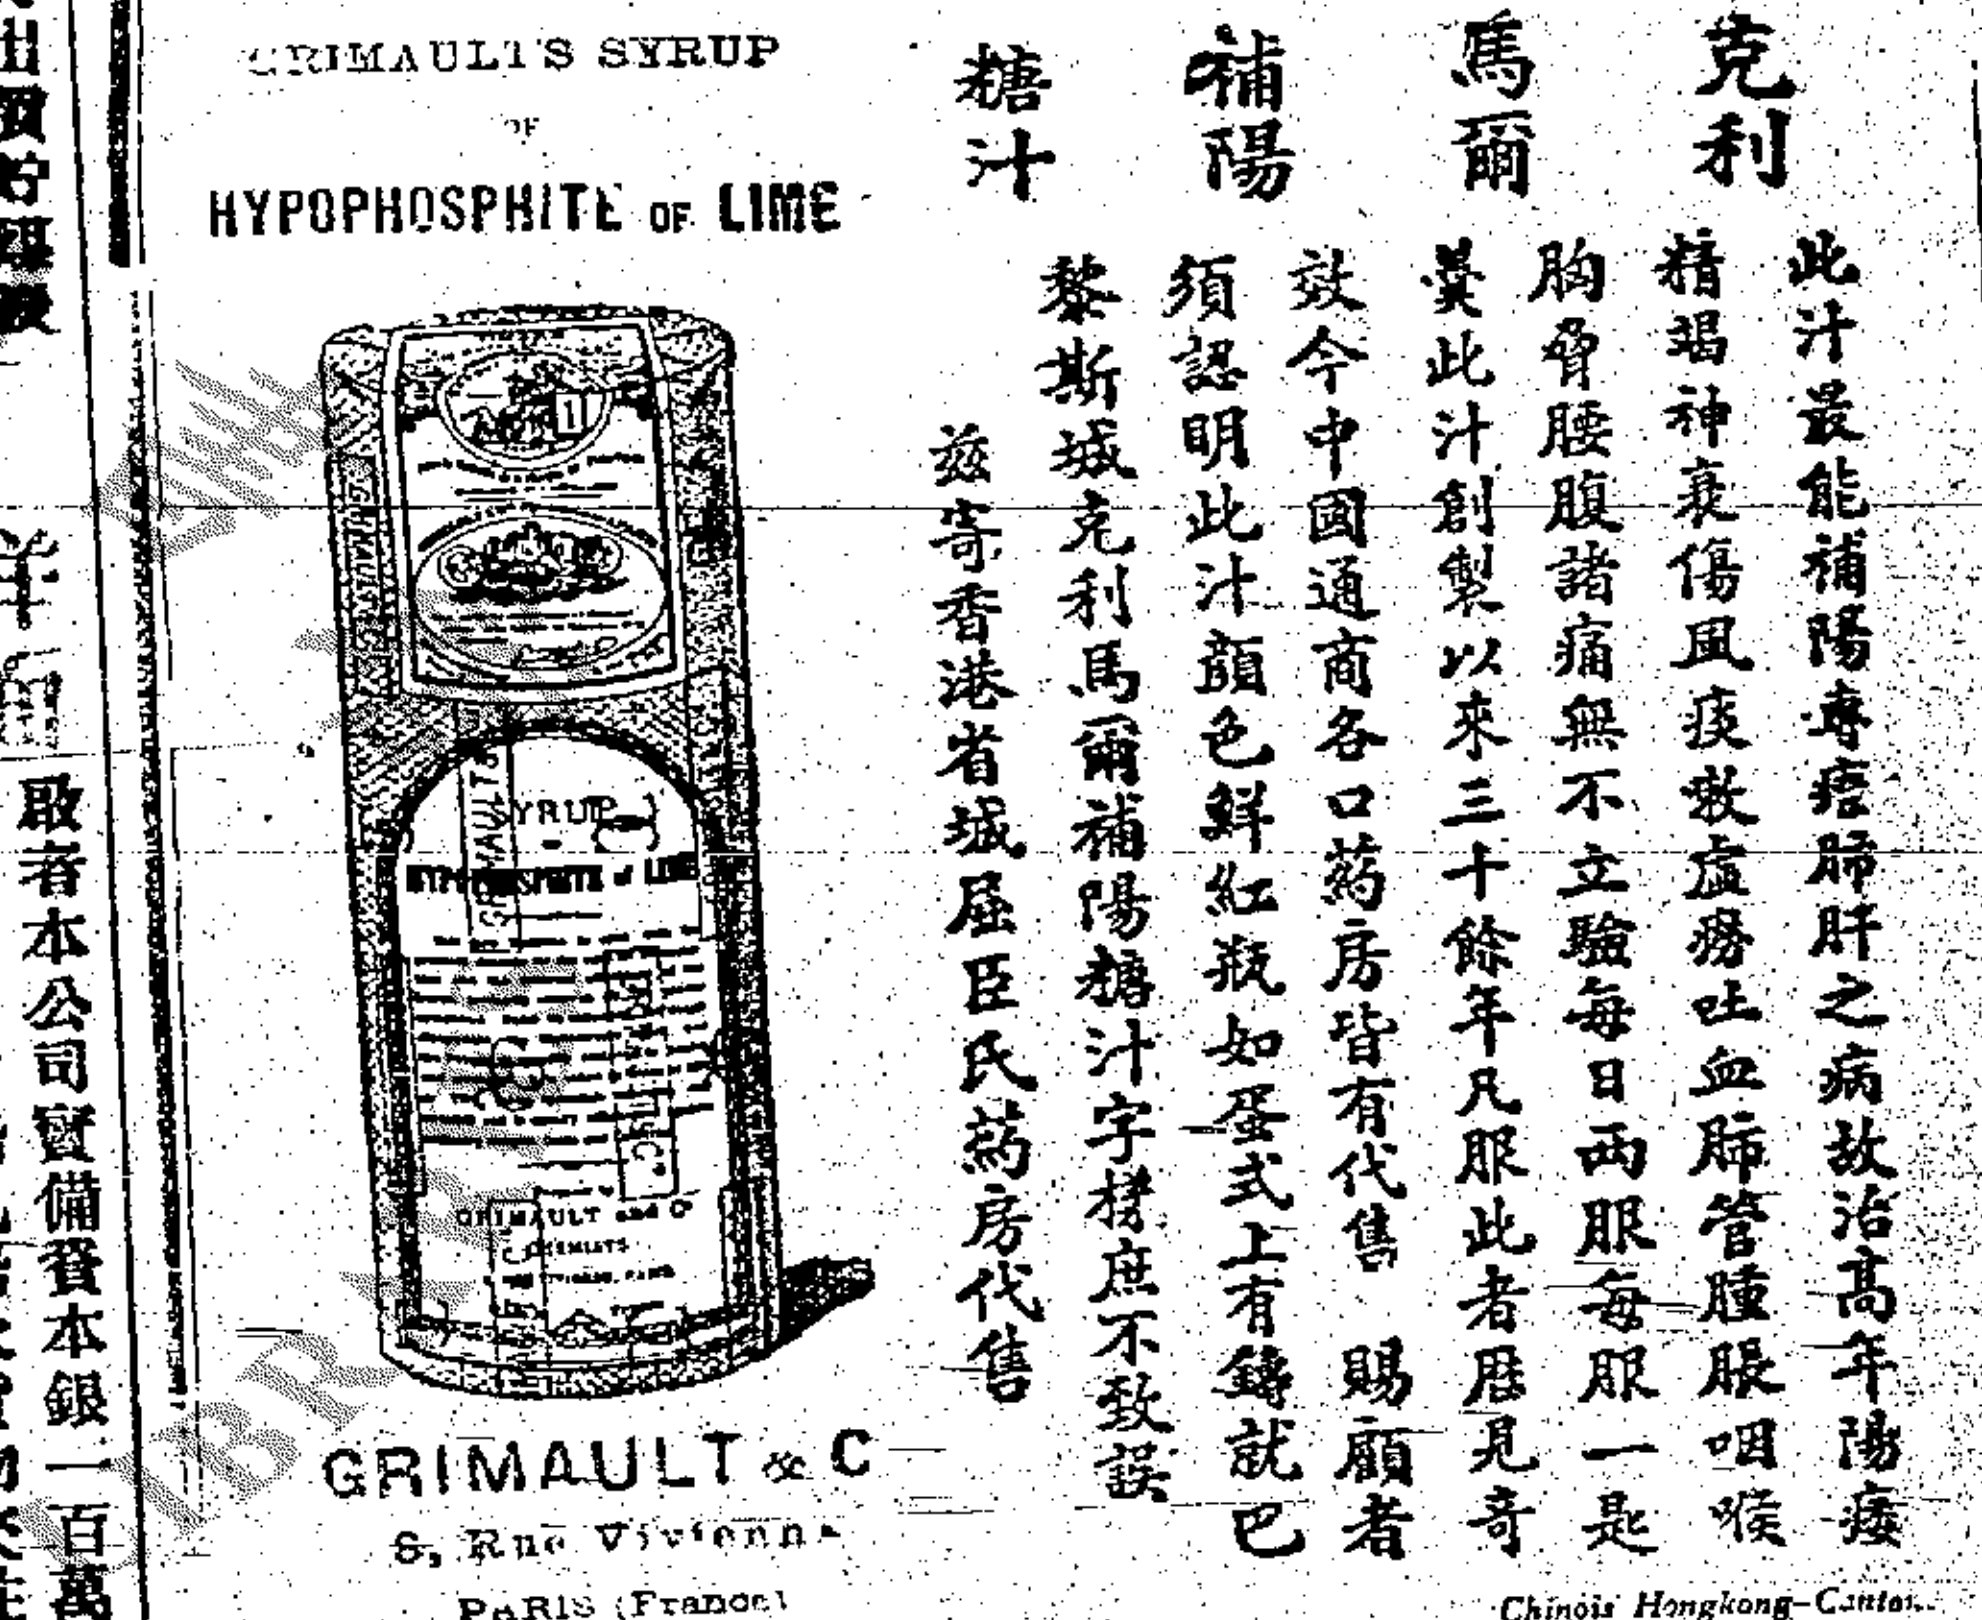 克利
馬爾
補陽
糖汁
此汁最能補陽專痊肺肝之病故治高年陽痿
精竭神衰傷風痰救虛癆吐血肺管腫脹咽喉
胸脅腰腹諸痛無不立驗每日兩服每服一匙
羹此汁創製以來三十餘年凡服此者歷見奇
效今中國通商各口葯房皆有代售 賜顧者
須認明此汁顏色鮮紅瓶如蛋式上有鑄就巴
黎斯城克利馬爾補陽糖汁字樣庶不致誤
茲寄香港省城屈臣氏葯房代售
GRIMAULT'S SYRUP
OF
HYPOPHOSPHITE OF LIME
SYRUP
HYPOPHOSPHITE of LIME
GRIMAULT and Co
CHEMISTS
GRIMAULT & C
8, Rue Vivienne
PARIS (France)
Chinois Hongkong-Canton
啟者本公司實備資本銀一百萬